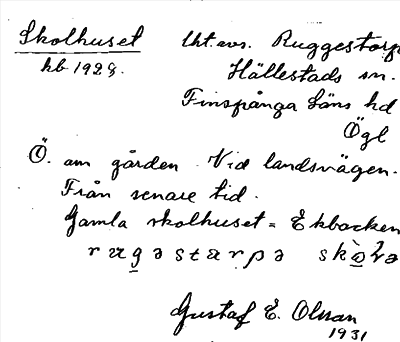 Skolhuset Uht. avs. Ruggestorp
kb 1928. Hällestads sn.
Finspånga läns hd
Ögl
Ö. om gården. Vid landsvägen.
Från senare tid.
Gamla skolhuset = Ekbacken
Gustaf E. Olsson
1931